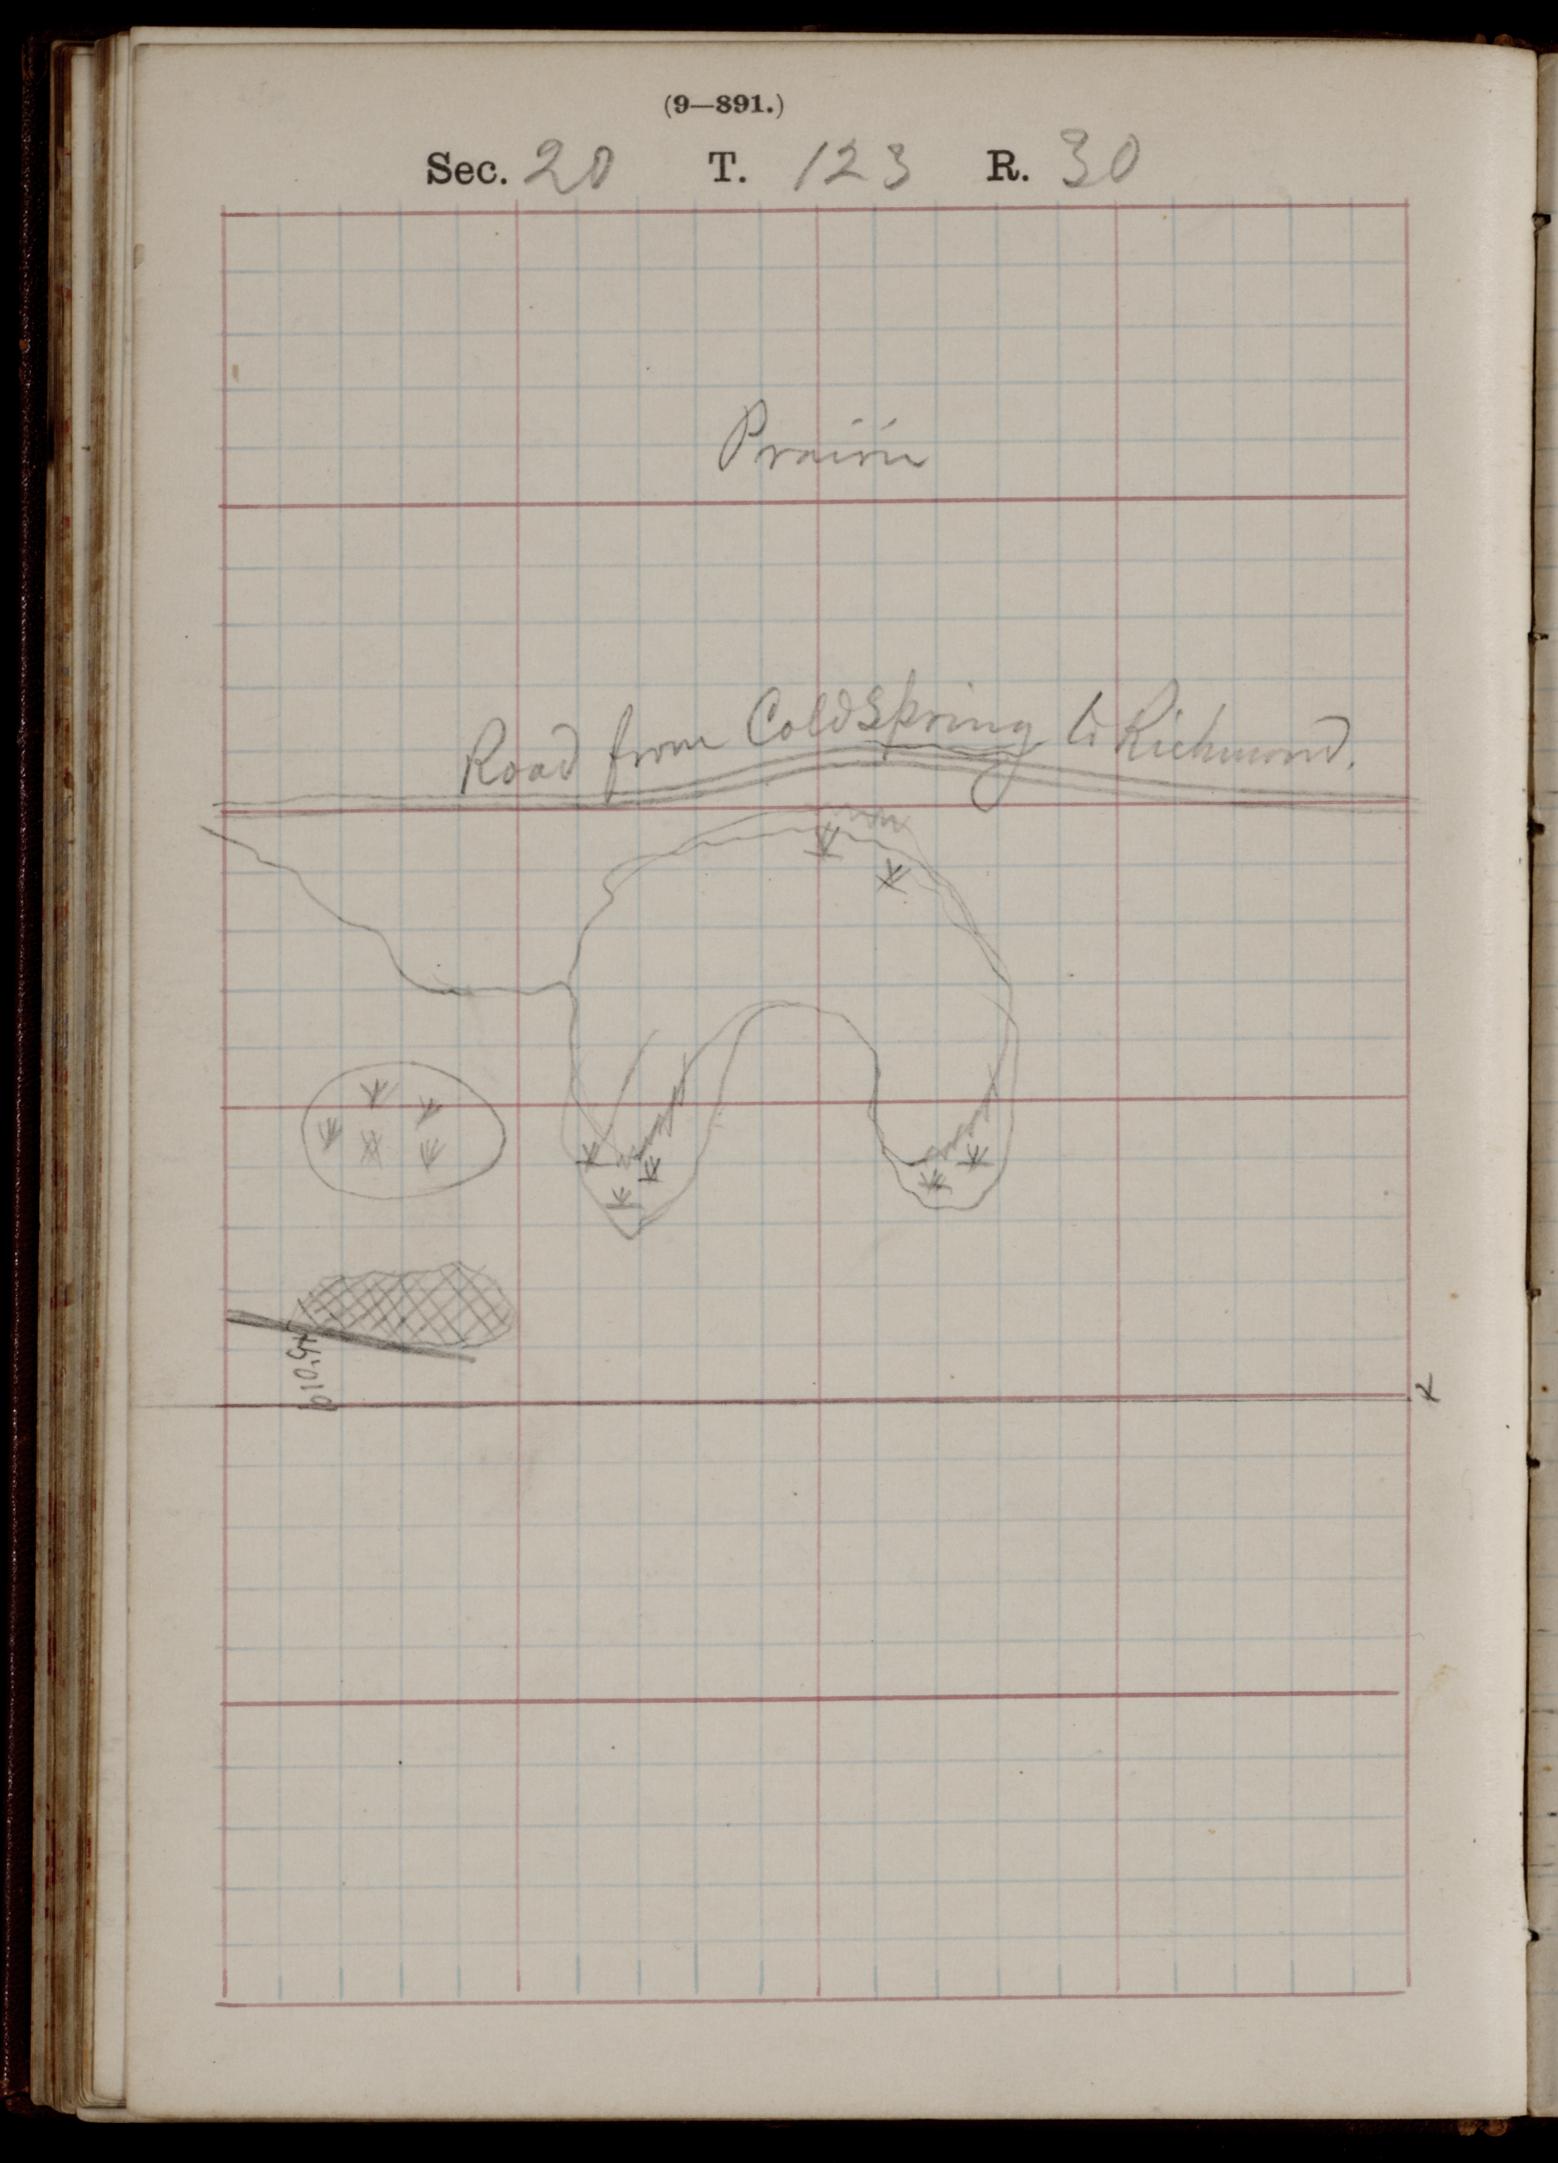 (9—891.)
Sec. 20 T. 123 R. 30
Prairie
Road from Cold Spring to Richmond.